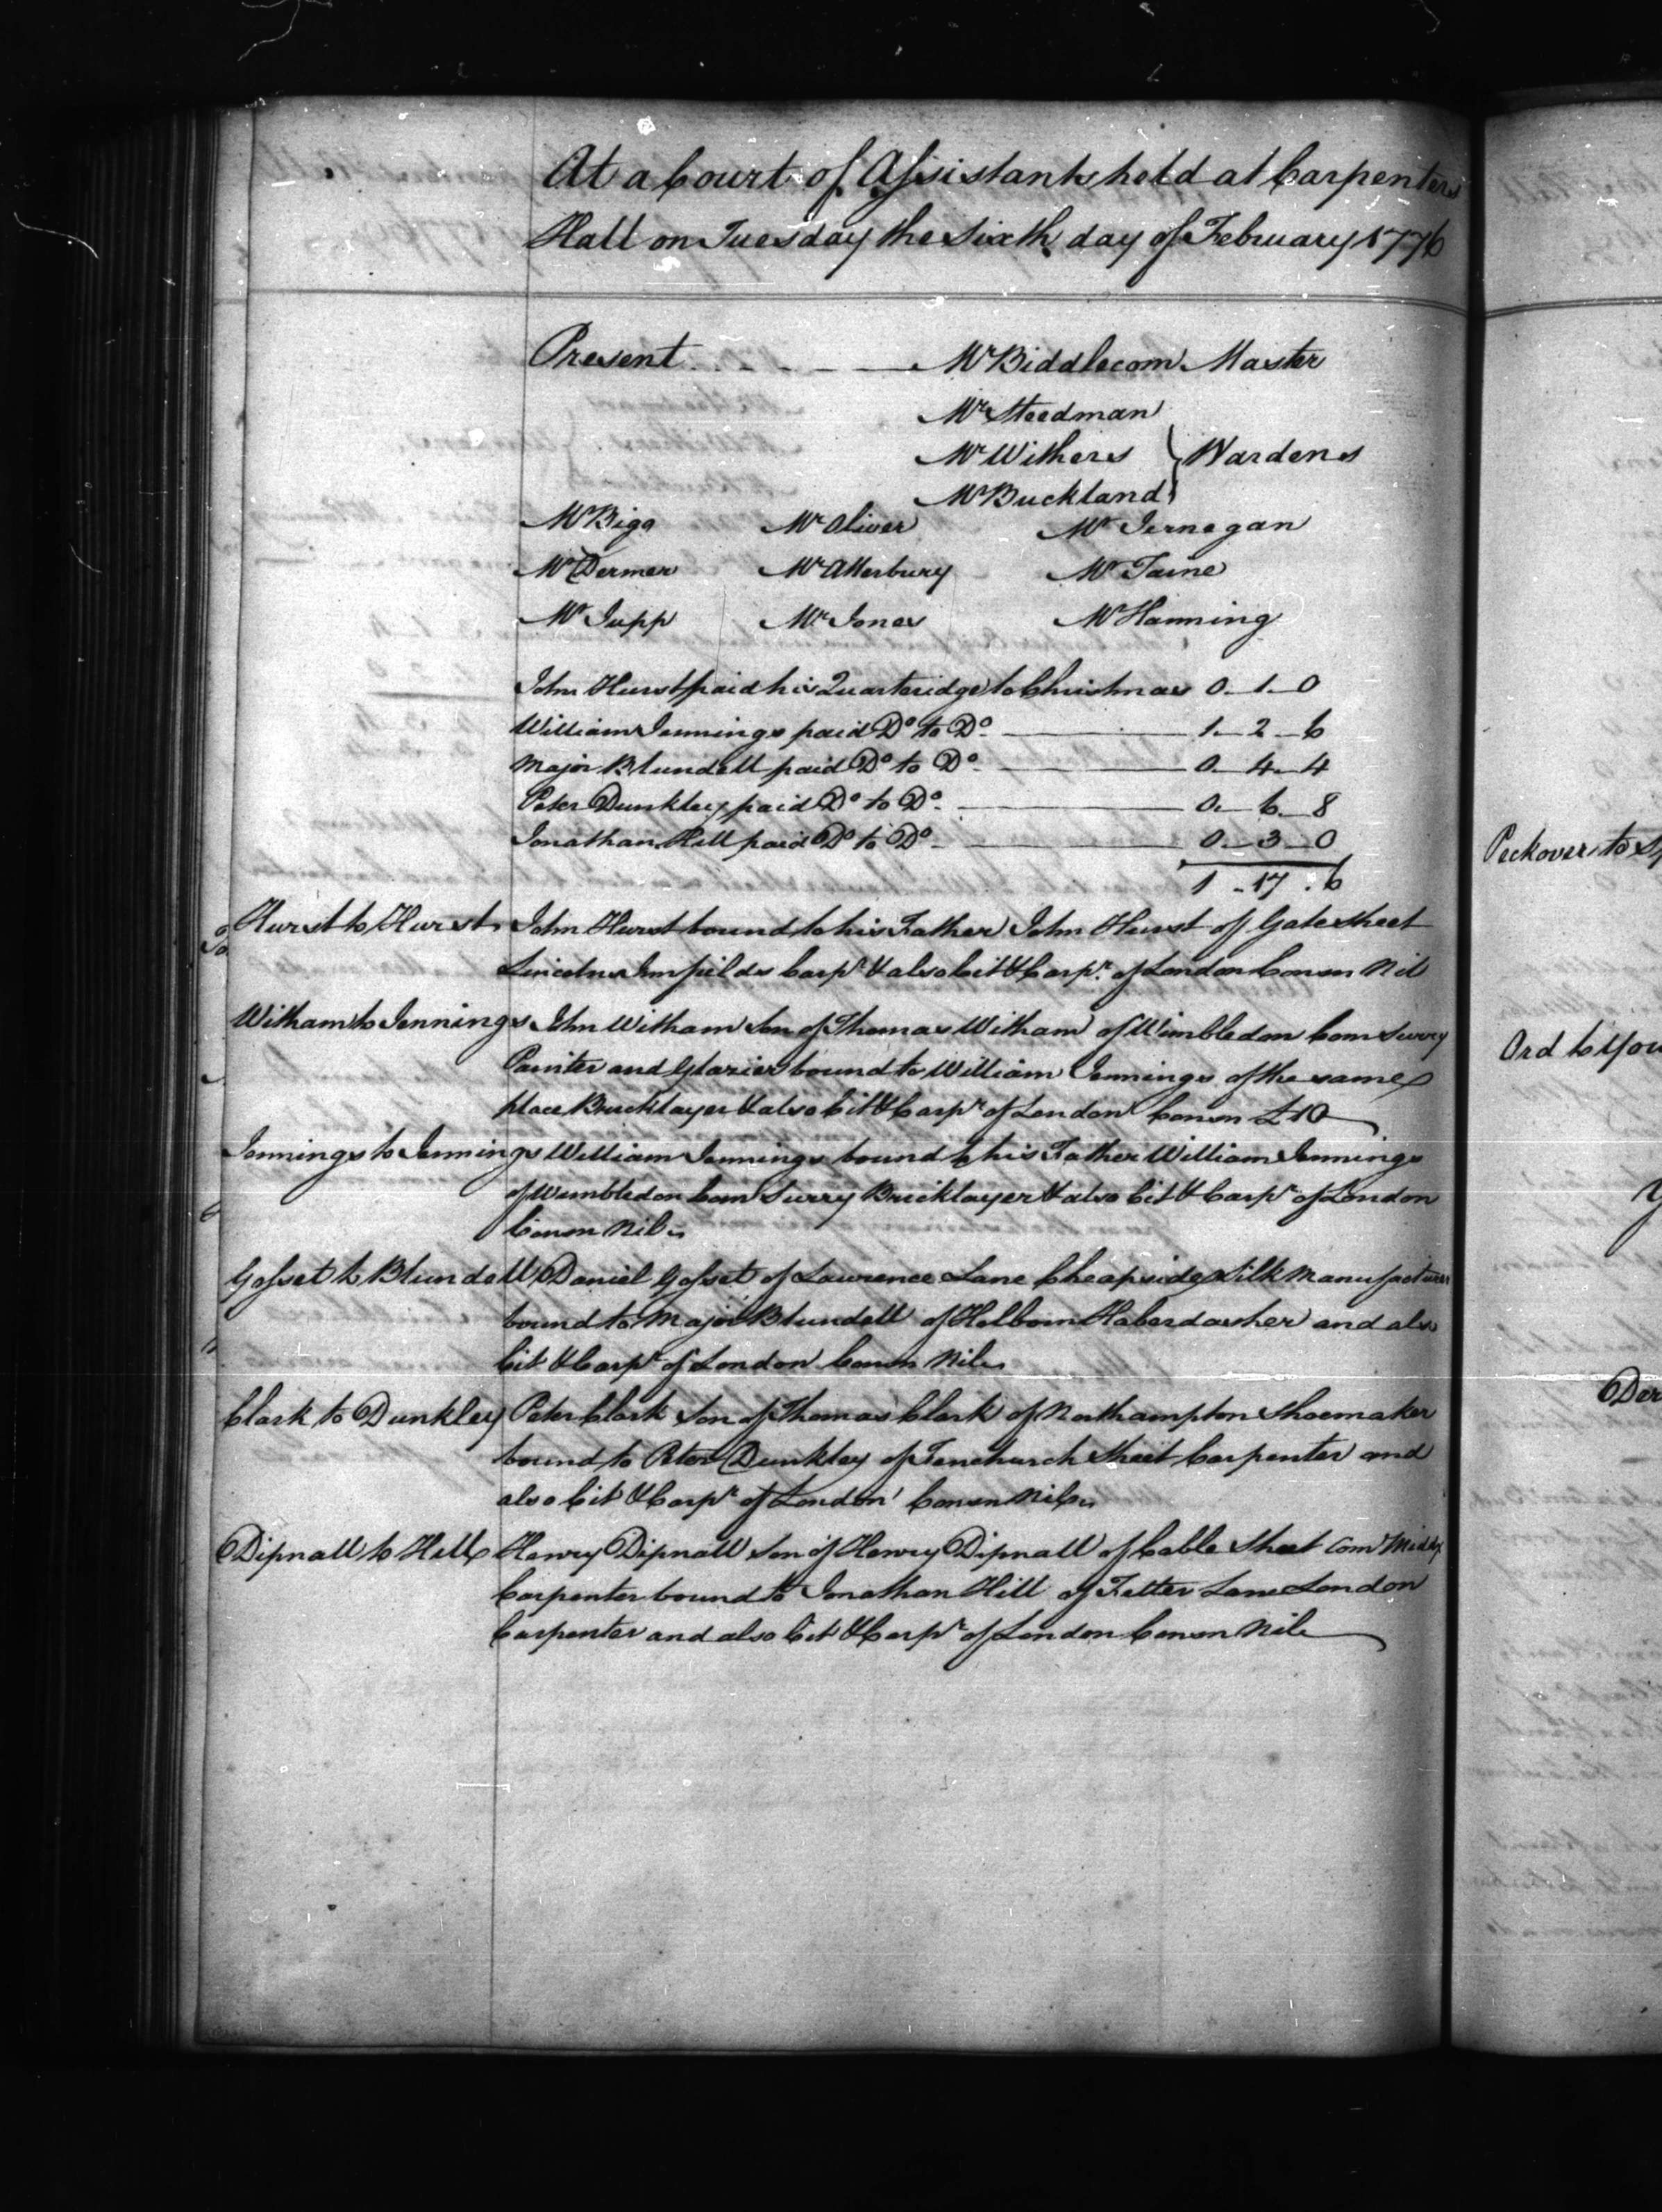 At a Court of Assistants held at Carpenters
Hall on Tuesday the Sixth day of February 1776
Present Mr Biddlecom Master
Mr Steedman
Mr Withers } Wardens
Mr Buckland
Mr Bigg Mr Oliver Mr Jernegan
Mr Dermer Mr Atterbury Mr Taine
Mr Jupp Mr Jones Mr Hanning
John Hurst paid his Quarteridge to Christmas 0 - 1 - 0
William Jennings paid Do to Do 1 - 2 - 6
Major Blundell paid Do to Do 0 - 4 - 4
Peter Dunkley paid Do to Do 0 - 6 - 8
Jonathan Hill paid Do to Do 0 - 3 - 0
1 - 17 - 6
Hurst to Hurst John Hurst bound to his Father John Hurst of Gate Street
Lincolns Inn fields Carpr & also Cit & Carpr of London Conson Nil
Witham to Jennings John Witham Son of Thomas Witham of Wimbledon Com Surry
Painter and Glazier bound to William Jennings of the same
place Bricklayer & also Cit & Carpr of London Conson £10
Jennings to Jennings William Jennings bound to his Father William Jennings
of Wimbledon Com Surry Bricklayer & also Cit & Carpr of London
Conson Nil
Gosset to Blundell Daniel Gosset of Lawrence Lane Cheapside Silk Manufacturer
bound to Major Blundell of Holborn Haberdasher and also
Cit & Carpr of London Conson Nil
Clark to Dunkley Peter Clark Son of Thomas Clark of Northampton Shoemaker
bound to Peter Dunkley of Fenchurch Street Carpenter and
also Cit & Carpr of London Conson Nil
Dipnall to Hill Henry Dipnall Son of Henry Dipnall of Cable Street Com Middx
Carpenter bound to Jonathan Hill of Fetter Lane London
Carpenter and also Cit & Carpr of London Conson Nil
Peckover to
Ord to You
Der